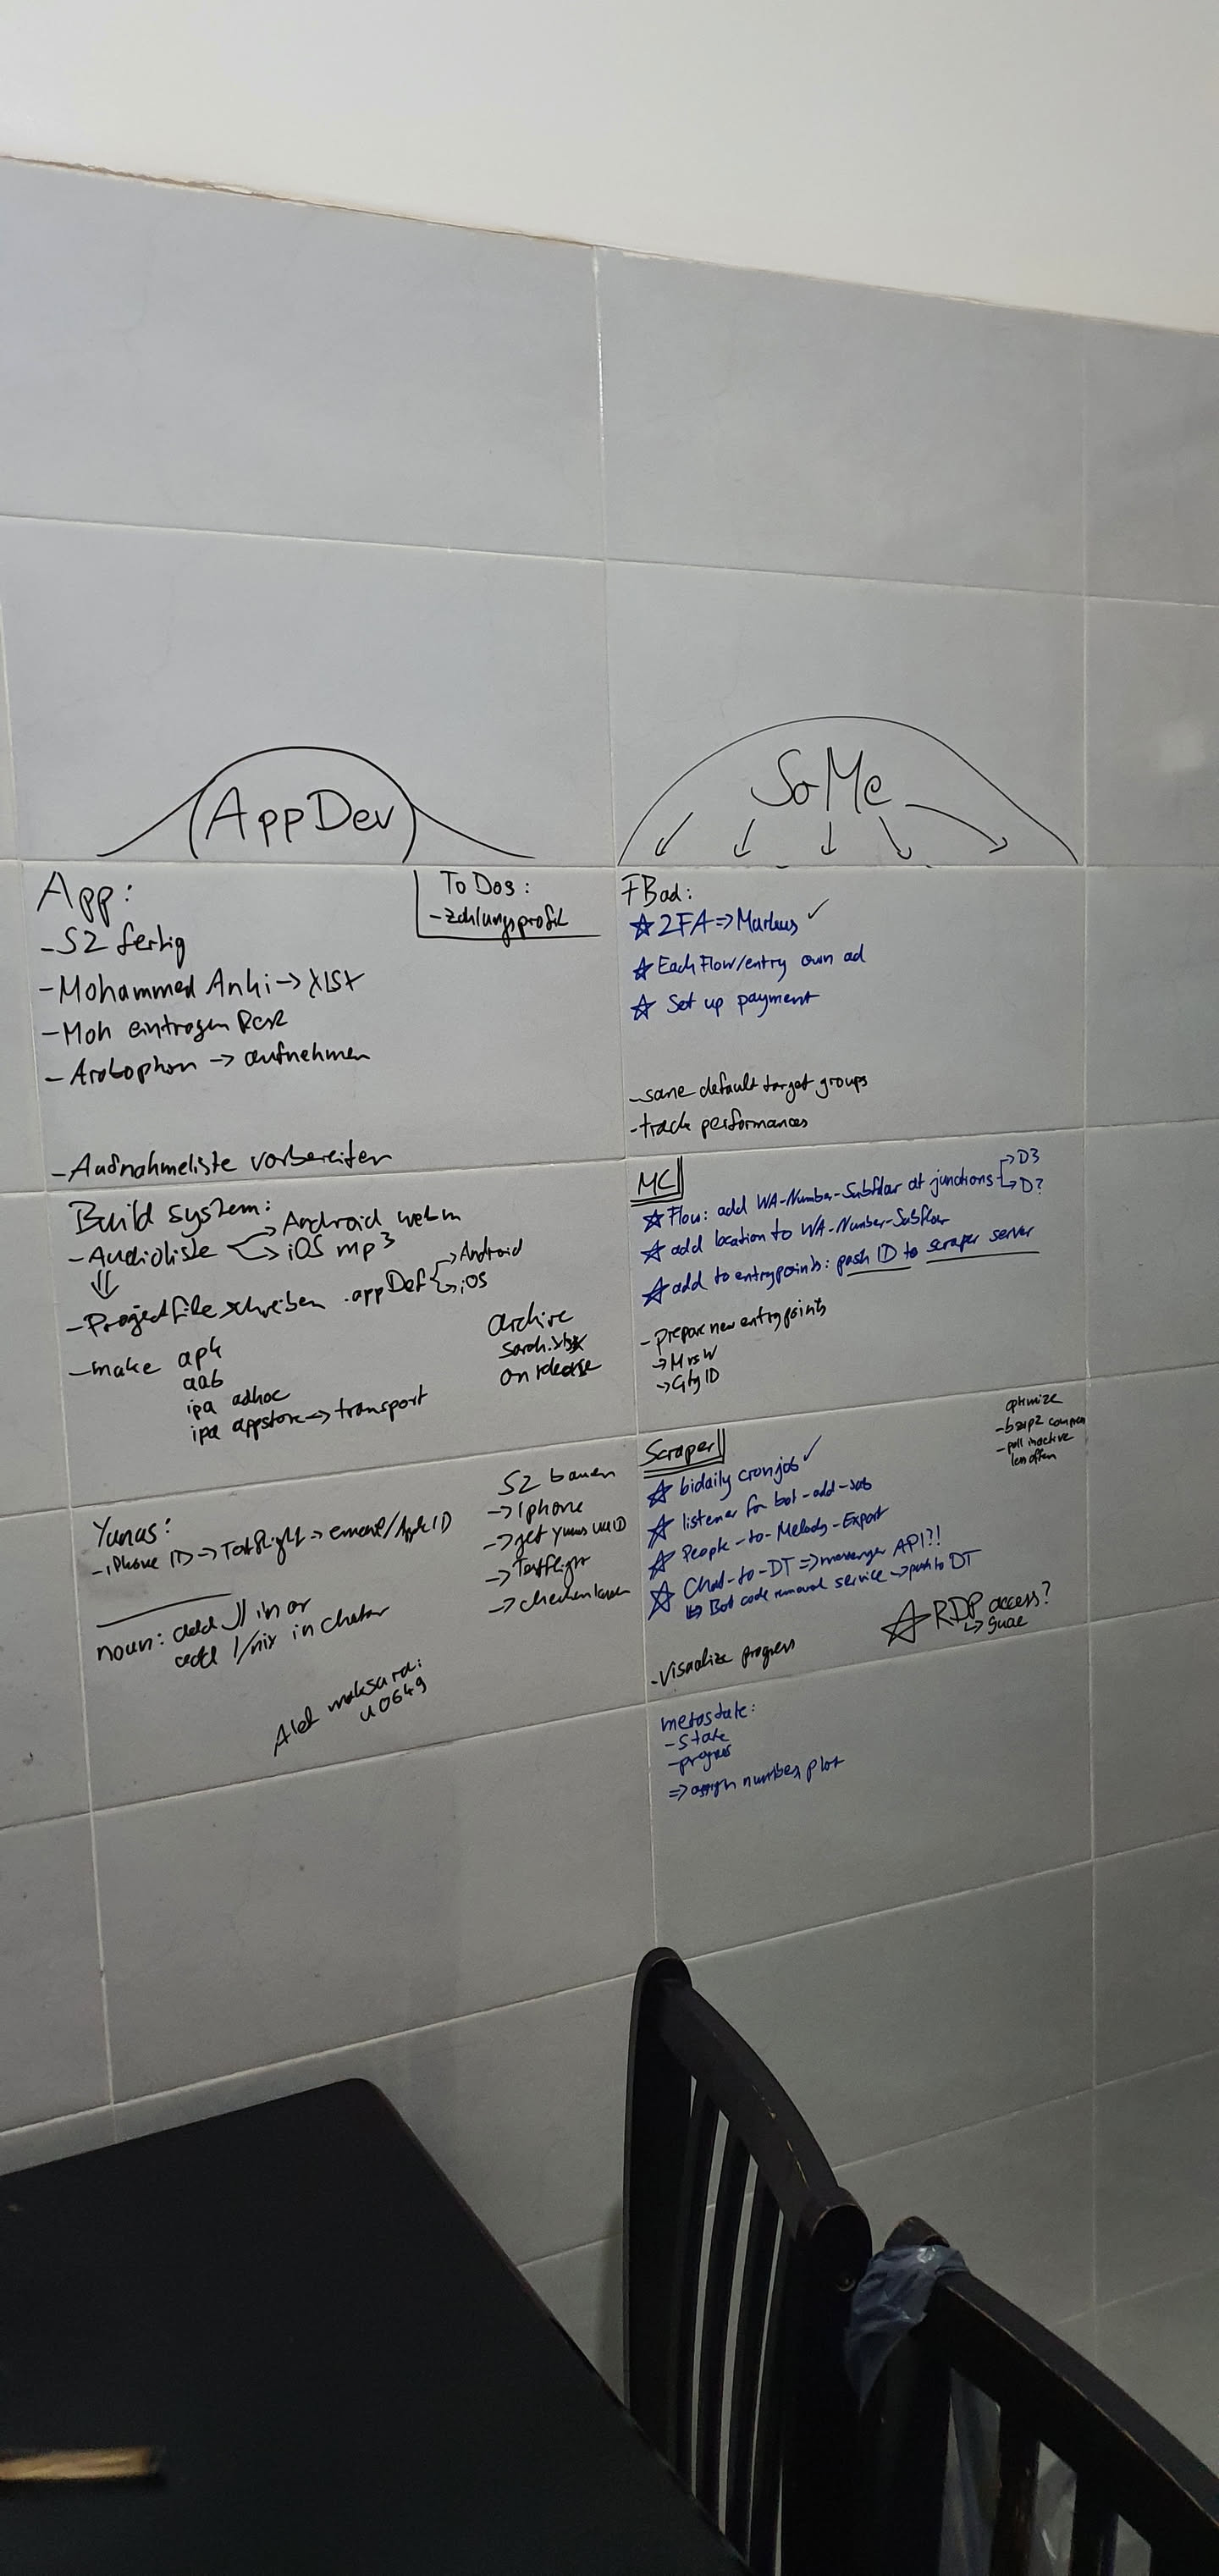 AppDev
App:
- S2 fertig
- Mohammed Anki -> XLSX
- Moh eintragen
- Arabophon -> aufnehmen
- Aufnahmeliste vorbereiten
To Dos:
- Zahlungsprofil
Build system:
- Audioliste -> Android webm
-> iOS mp3
⇓
- Projectfile schreiben .appDef -> Android
-> iOS
- make apk
aab
ipa adhoc
ipa appstore -> transport
archive
on release
Yunus:
- iPhone ID -> Testflight -> email/Apple ID
noun: add الـ in or
add l/nix in
Alef maksura:
u0649
S2 bauen
-> Iphone
-> get Yunus UUID
-> Testflight
SoMe
FBad:
☆ 2FA => Markus ✓
☆ Each Flow/entry own ad
☆ Set up payment
- sane default target groups
- track performances
MC
☆ Flow: add WA-Number-Subflow at junctions -> D3
-> D?
☆ add location to WA-Number-Subflow
☆ add to entrypoints: push ID to scraper server
- Prepare new entrypoints
-> MrsW
Scraper
☆ bidaily cronjob ✓
☆ listener for bot-add-sub
☆ People-to-Melody-Export
☆ Chat-to-DT => messenger API?!
Bot code removal service -> push to DT
☆ RDP access?
- Visualize progress
optimize
- bzip2
- poll inactive
less often
metastate:
- State
- progress
=> assign number, plot